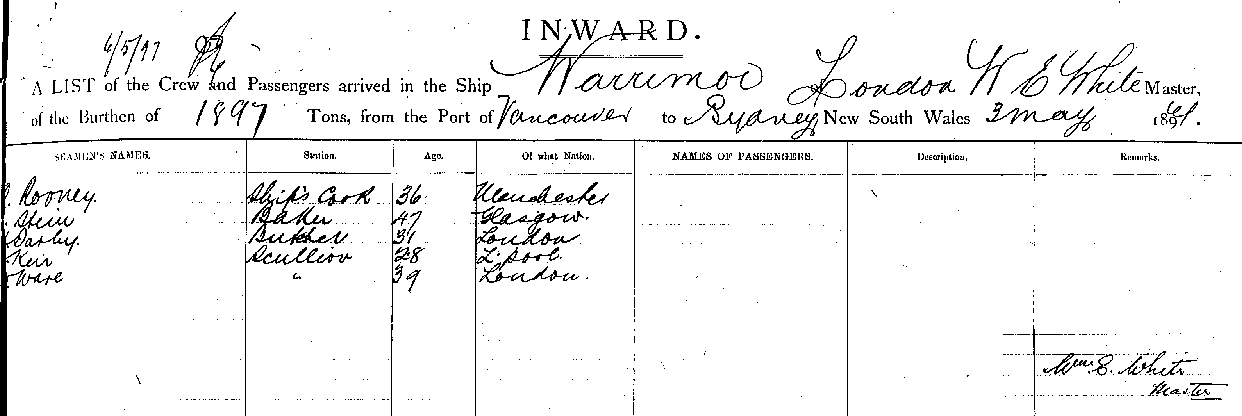 INWARD.
6/5/97
A LIST of the Crew and Passengers arrived in the Ship Warrimoo London W E White Master,
of the Burthen of 1897 Tons, from the Port of Vancouver to Sydney New South Wales 3 May 189
SEAMEN'S NAMES. Station. Age. Of what Nation. NAMES OF PASSENGERS. Description. Remarks.
Rooney Ship's Cook 36 Manchester
Stein Baker 47 Glasgow.
Darby. Butcher 31 London
Keir Scullion 28 L'pool.
Ware " 39 London.
Wm E. White
Master